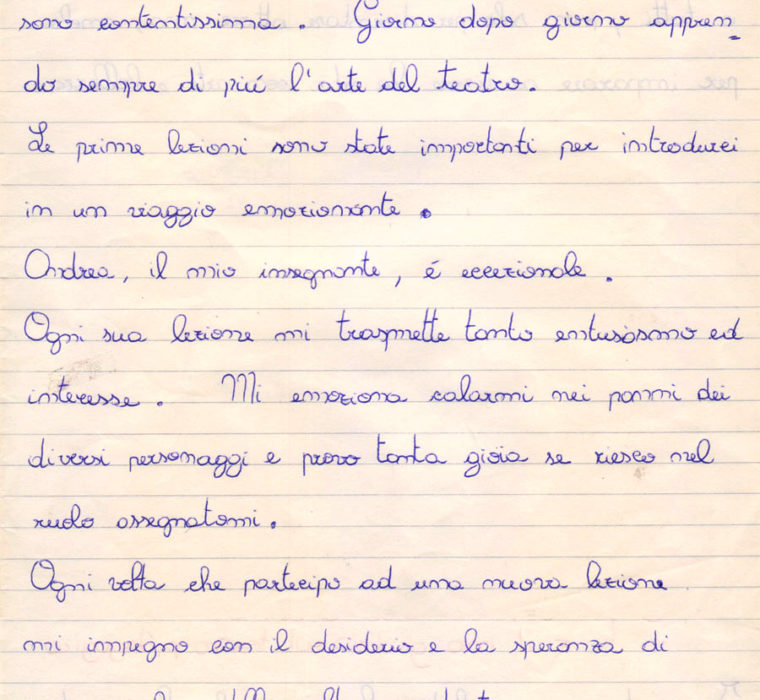 sono contentissima. Giorno dopo giorno appren_
do sempre di piú l'arte del teatro.
Le prime lezioni sono state importanti per introdurci
in un viaggio emozionante.
Andrea, il mio insegnante, é eccezionale.
Ogni sua lezione mi trasmette tanto entusiasmo ed
interesse. Mi emoziona calarmi nei panni dei
diversi personaggi e provo tanta gioia se riesco nel
ruolo assegnatomi.
Ogni volta che partecipo ad una nuova lezione
mi impegno con il desiderio e la speranza di